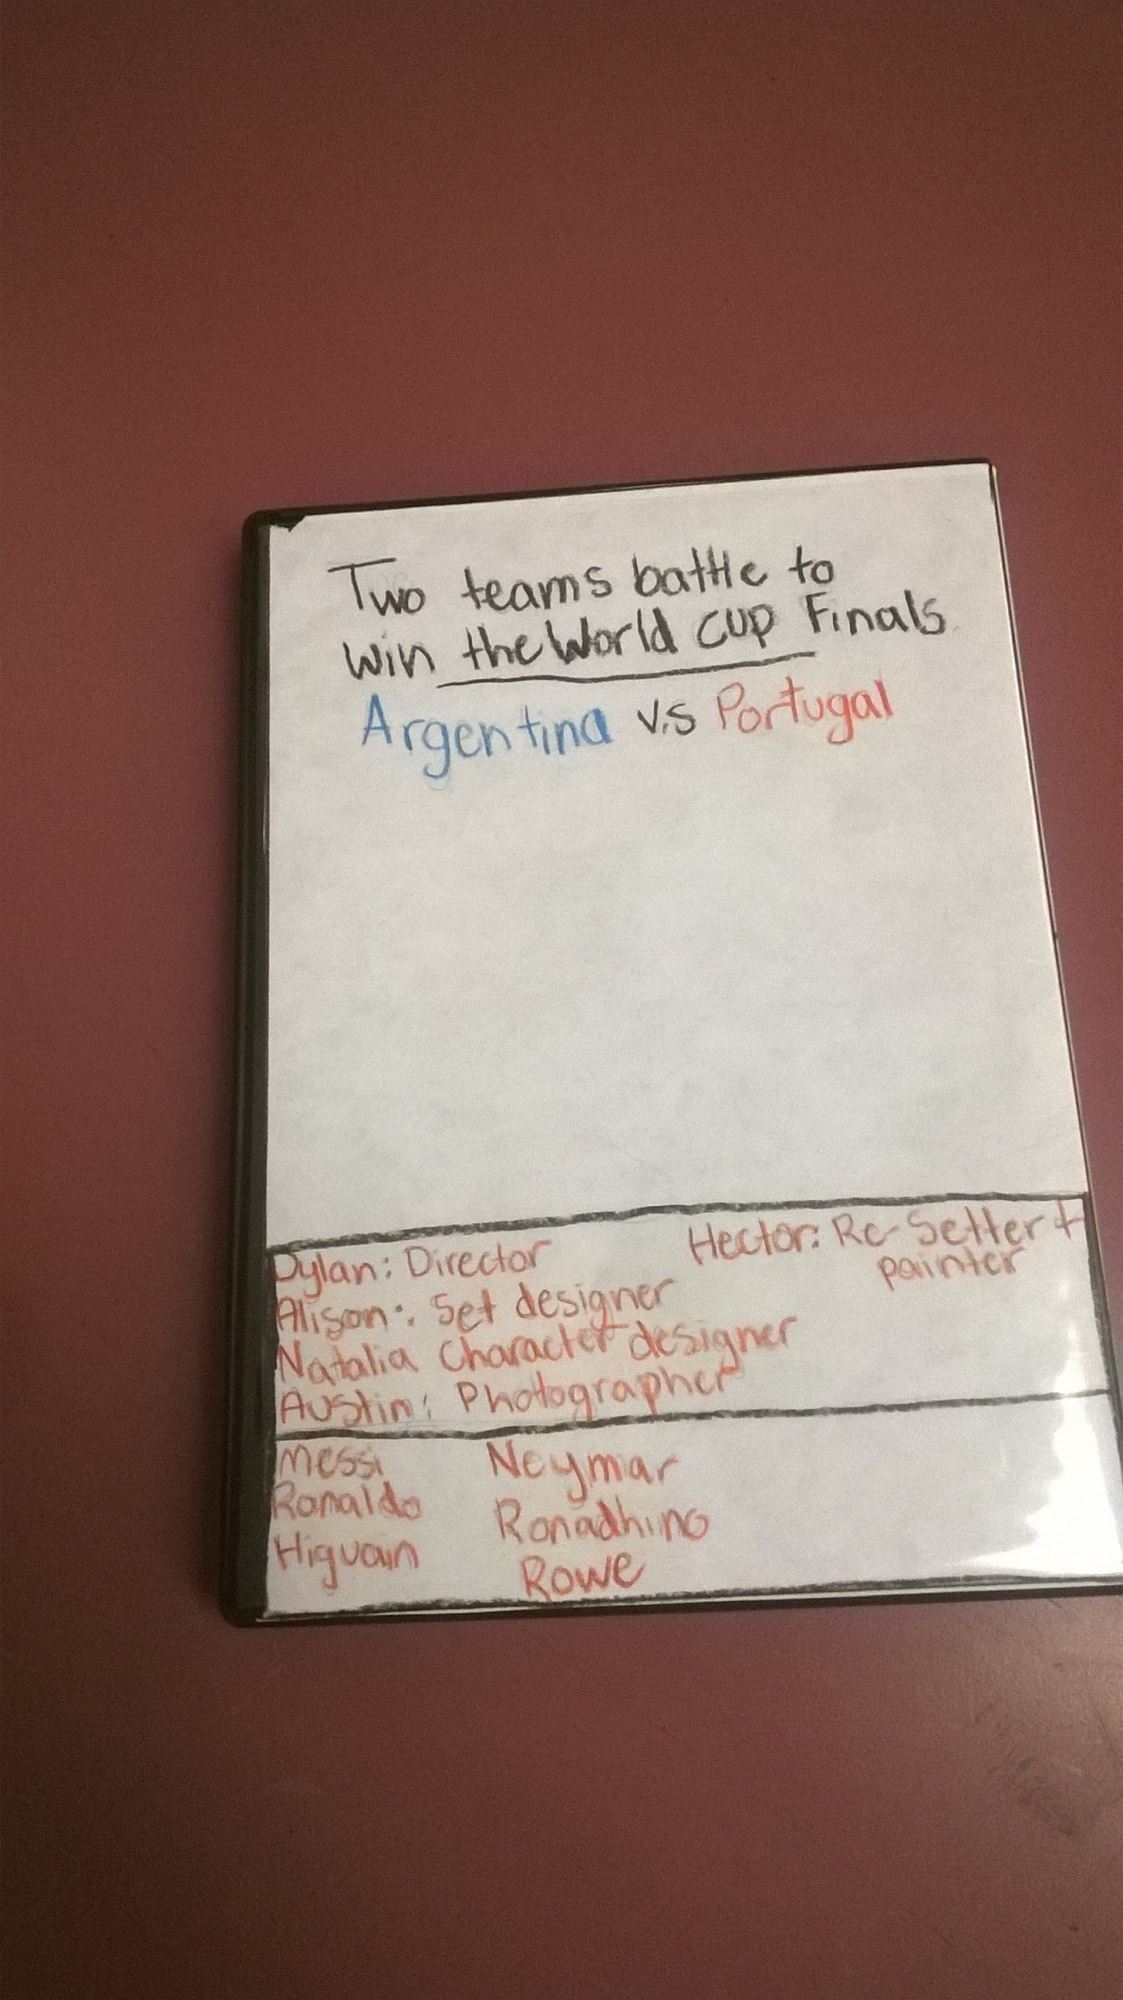 Two teams battle to
win the World CUP Finals
Argentina v.s Portugal
Dylan: Director
Hector: Re-Setter +
painter
Alison: Set designer
Natalia Character designer
Austin: Photographer
Messi
Ronaldo
Higuain
Neymar
Ronadhino
Rowe